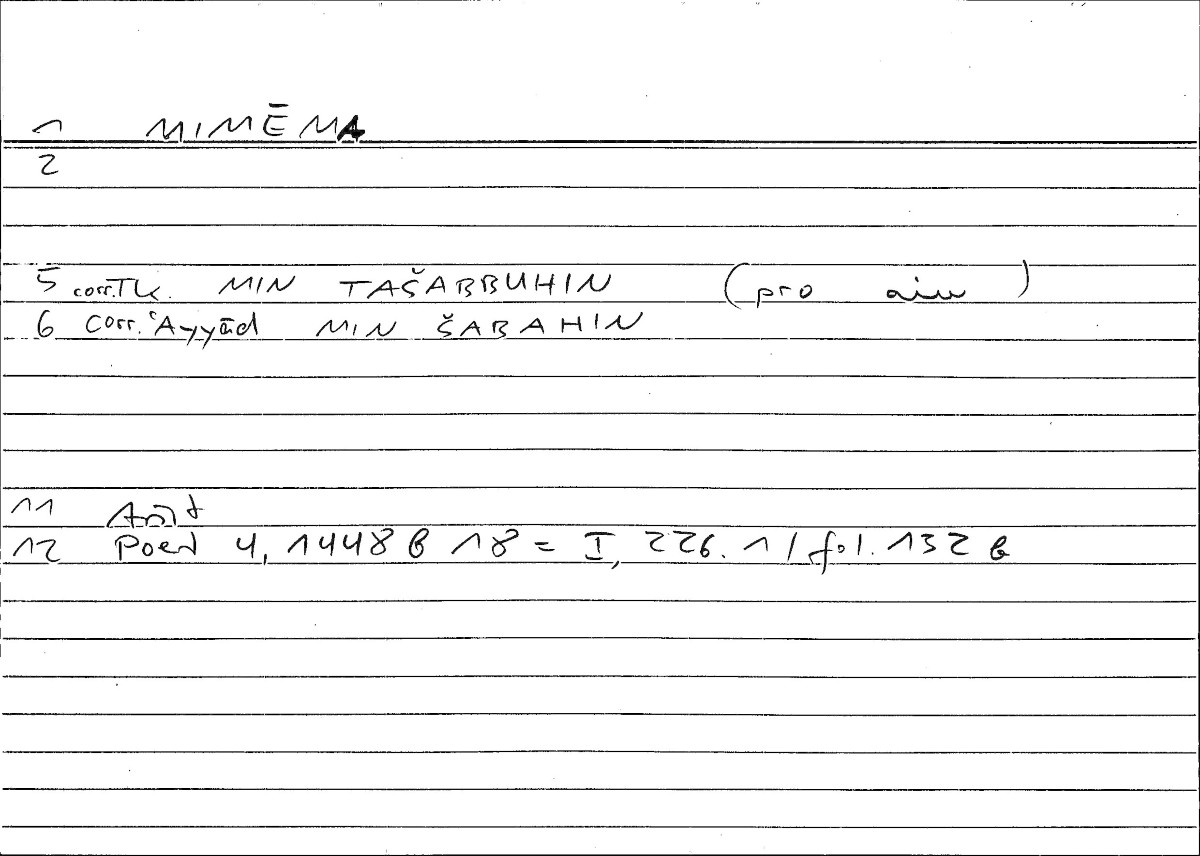 1 MIMĒMA
2
5 corr.Tk. MIN TAŠABBUHIN (pro )
6 corr. ʿAyyād MIN ŠABAHIN
11 Arist
12 Poet 4, 1448 b 18 = I, 226. 1 / fol. 132 b